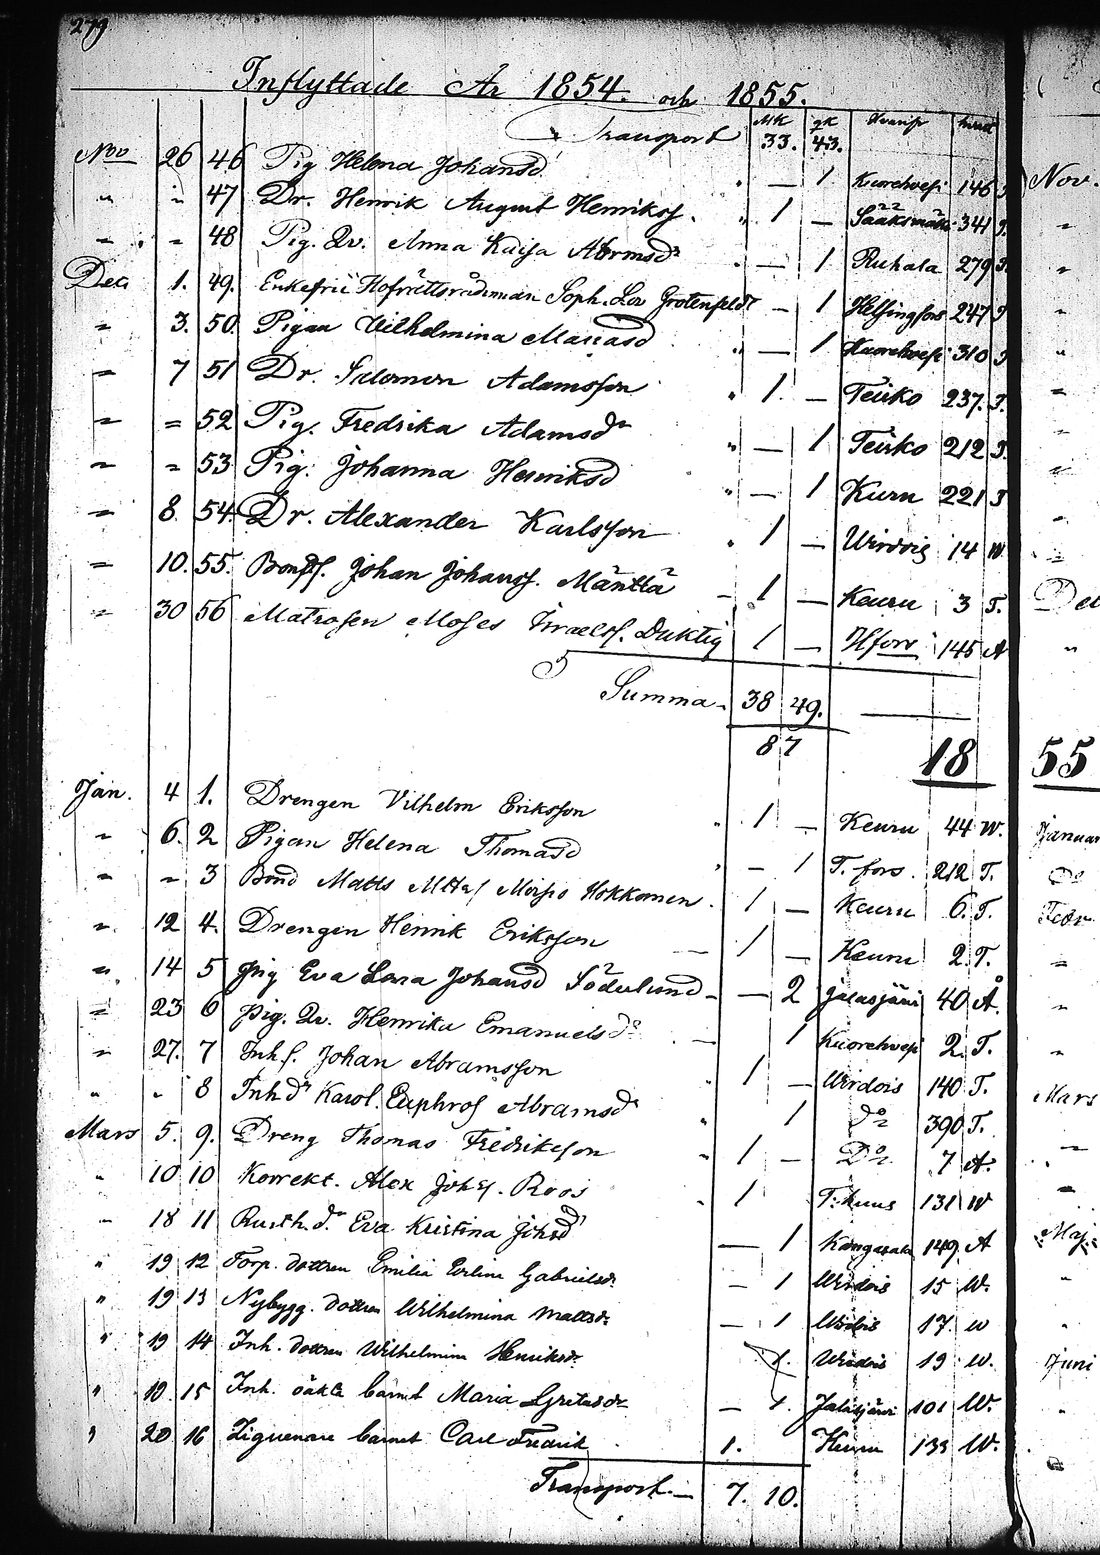 279
Inflyttade År 1854. och 1855.
MK qk hvarifr
Transport 33. 43.
Nov 26 46 Pig Helena Johansd " — 1 Kuorehvesi 146
" " 47 Dr. Henrik August Henrikss. " 1 — Sääksmäki 341
" " 48 Pig. Qv. Anna Kaisa Abrmsdr — 1 Ruhala 279
Dec 1. 49. Enkefru Hofrättsrådinnan Soph. Lov Grotenfeldt — 1 Helsingfors 247
" 3. 50. Pigan Vilhelmina Mariasd " — 1 Kuorehvesi 310
" 7 51 Dr. Salomon Adamsson " 1 — Teisko 237. T.
" " 52 Pig. Fredrika Adamsdr " — 1 Teisko 212 T.
" " 53 Pig. Johanna Henriksd " — 1 Kuru 221 T
" 8 54. Dr. Alexander Karlsson " 1 — Wirdois 14 W
" 10. 55. Johan Johanss. Mänttä — 1 — Keuru 3 T.
" 30 56 Matrosen Moses Israelss. Duktig 1 — Hfors 145 A
Summa 38 49.
87
18 55
Jan. 4 1. Drengen Vilhelm Eriksson " 1 — Keuru 44 W.
" 6. 2 Pigan Helena Thomasd — 1 T. fors. 212 T.
" " 3 Bond Matts Moisio Hokkanen. 1 — Keuru 6. T.
" 12 4. Drengen Henrik Eriksson — 1 — Keuru 2. T.
" 14 5 Pig Eva Lovisa Johansd Söderlund — — 2 Jalasjärvi 40 A.
" 23 6 Pig. Qv. Henrika Emanuelsdr — 1 Kuorehvesi 2. T.
" 27. 7 Inh s. Johan Abramsson " 1 — Wirdois 140 T.
" " 8 Inh dr Karol. Euphros Abramsdr " 1 Do 390 T.
Mars 5. 9. Dreng Thomas Fredriksson " 1 — Do 7 A.
" 10 10 Korrekt. Alex Johss. Roos 1 T:huus 131 W
" 18 11 Rusth. dr Eva Kristina Johsd — 1 Kangasala 149. A
" 19 12 Torp. dottren Emilia Evelina Gabrielsdr — 1 Wirdois 15 W.
" 19 13 Nybygg. dottren Wilhelmina Mattsdr — 1 Wirdois 17. W
" 19 14 Inh. dottren Wilhelmina Henriksdr 1. Wirdois 19 W.
" 19. 15 Inh. oäkta barnet Maria Gretasdr — 1. Jalasjärvi 101 W.
" 20 16 Ziguenare barnet Carl Fredrik 1. Keuru 133 W.
Transport — 7. 10.
Nov.
Dec
Januar
Do
Febr
Mars
Maj
Juni